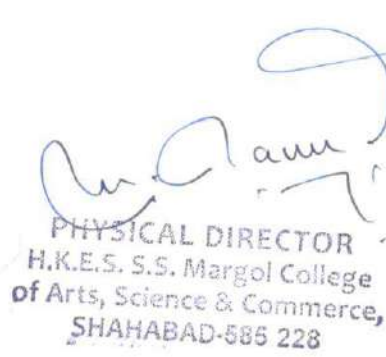 PHYSICAL DIRECTOR
H.K.E.S. S.S. Margol College
of Arts, Science & Commerce,
SHAHABAD-585 228